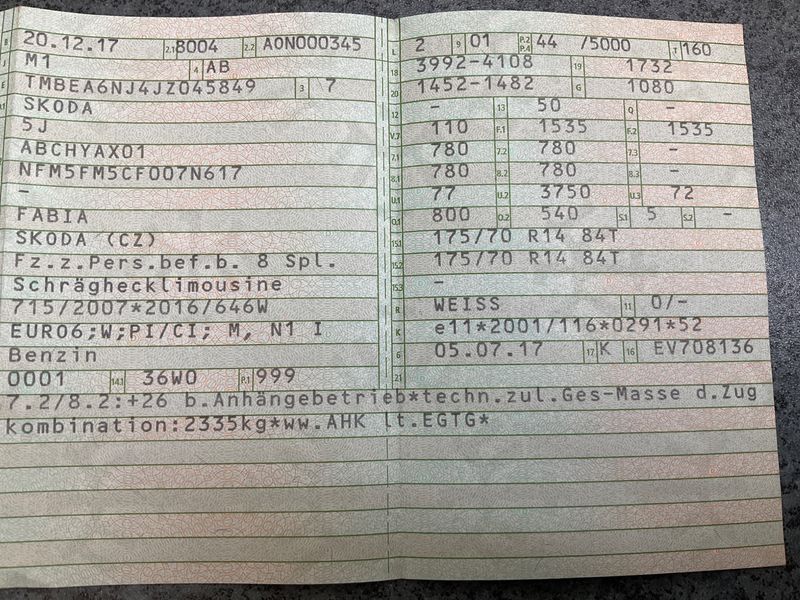 B 20.12.17 2.1 8004 2.2 A0N000345
J M1 4 AB
E TMBEA6NJ4JZ045849 3 7
SKODA
5J
ABCHYAX01
NFM5FM5CF007N617
–
FABIA
SKODA (CZ)
Fz.z.Pers.bef.b. 8 Spl.
Schräghecklimousine
715/2007*2016/646W
EURO6;W;PI/CI; M, N1 I
Benzin
0001 14.1 36W0 P.1 999
L 2 9 01 P.2 P.4 44 /5000 T 160
18 3992-4108 19 1732
20 1452-1482 G 1080
12 – 13 50 Q –
V.7 110 F.1 1535 F.2 1535
7.1 780 7.2 780 7.3 –
8.1 780 8.2 780 8.3 –
U.1 77 U.2 3750 U.3 72
O.1 800 O.2 540 S.1 5 S.2 –
15.1 175/70 R14 84T
15.2 175/70 R14 84T
15.3 –
R WEISS 11 0/-
K e11*2001/116*0291*52
6 05.07.17 17 K 16 EV708136
21
7.2/8.2:+26 b.Anhängebetrieb*techn.zul.Ges-Masse d.Zug
kombination:2335kg*ww.AHK lt.EGTG*